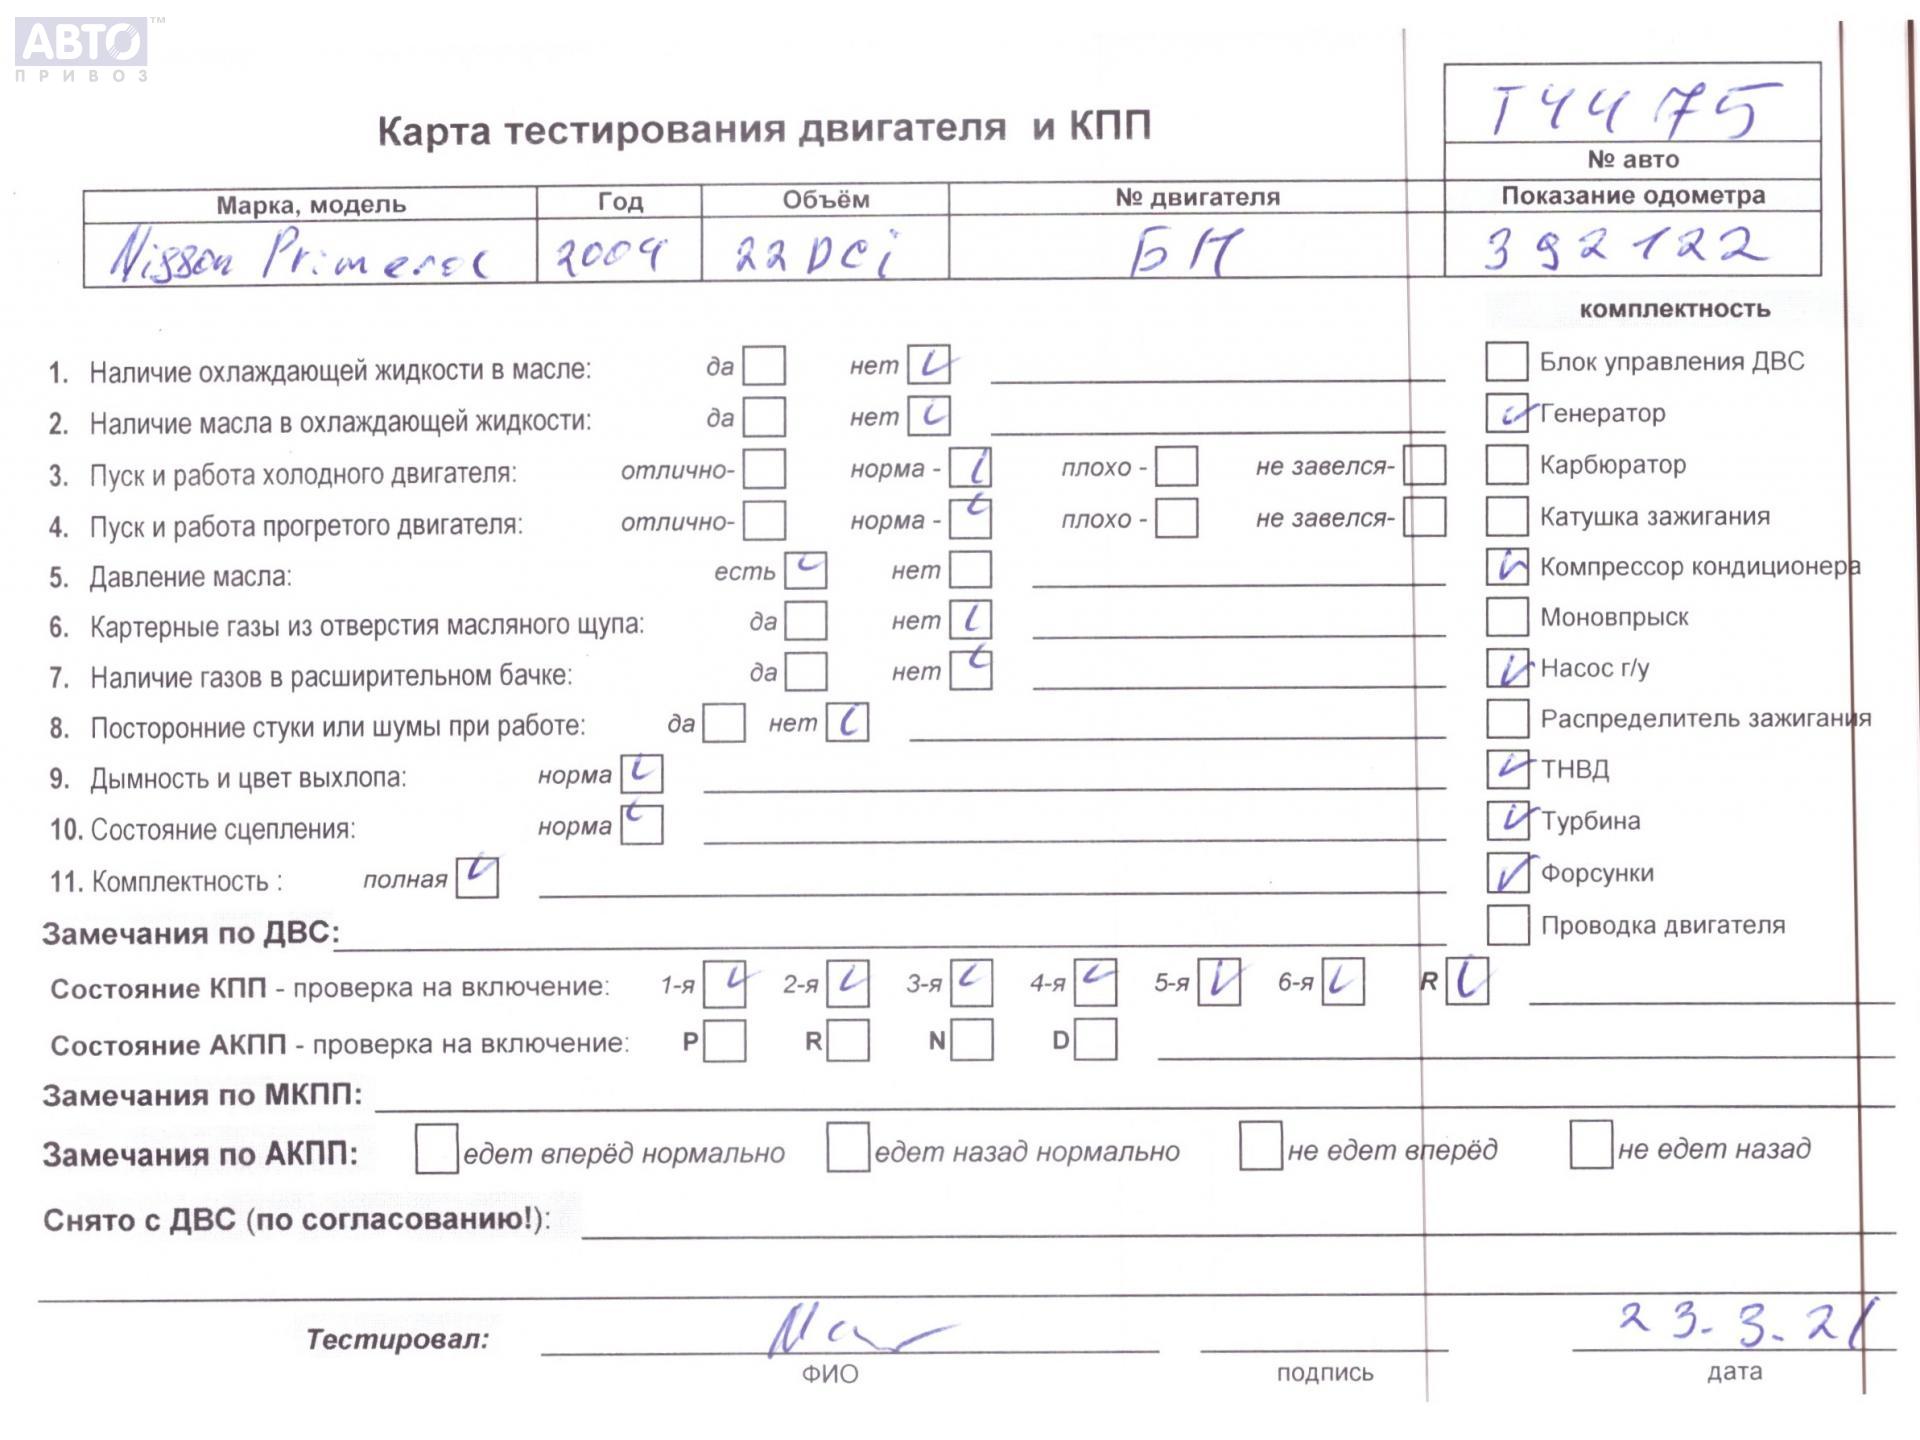 АВТО™
ПРИВОЗ
Т4475
Карта тестирования двигателя и КПП
№ авто
Марка, модель Год Объём № двигателя Показание одометра
Nissan Primera 2004 22 DCi БН 392122
комплектность
1. Наличие охлаждающей жидкости в масле: да нет Блок управления ДВС
2. Наличие масла в охлаждающей жидкости: да нет Генератор
3. Пуск и работа холодного двигателя: отлично- норма - плохо - не завелся- Карбюратор
4. Пуск и работа прогретого двигателя: отлично- норма - плохо - не завелся- Катушка зажигания
5. Давление масла: есть нет Компрессор кондиционера
6. Картерные газы из отверстия масляного щупа: да нет Моновпрыск
7. Наличие газов в расширительном бачке: да нет Насос г/у
8. Посторонние стуки или шумы при работе: да нет Распределитель зажигания
9. Дымность и цвет выхлопа: норма ТНВД
10. Состояние сцепления: норма Турбина
11. Комплектность : полная Форсунки
Замечания по ДВС: Проводка двигателя
Состояние КПП - проверка на включение: 1-я 2-я 3-я 4-я 5-я 6-я R
Состояние АКПП - проверка на включение: P R N D
Замечания по МКПП:
Замечания по АКПП: едет вперёд нормально едет назад нормально не едет вперёд не едет назад
Снято с ДВС (по согласованию!):
Тестировал: 23.3.21
ФИО подпись дата